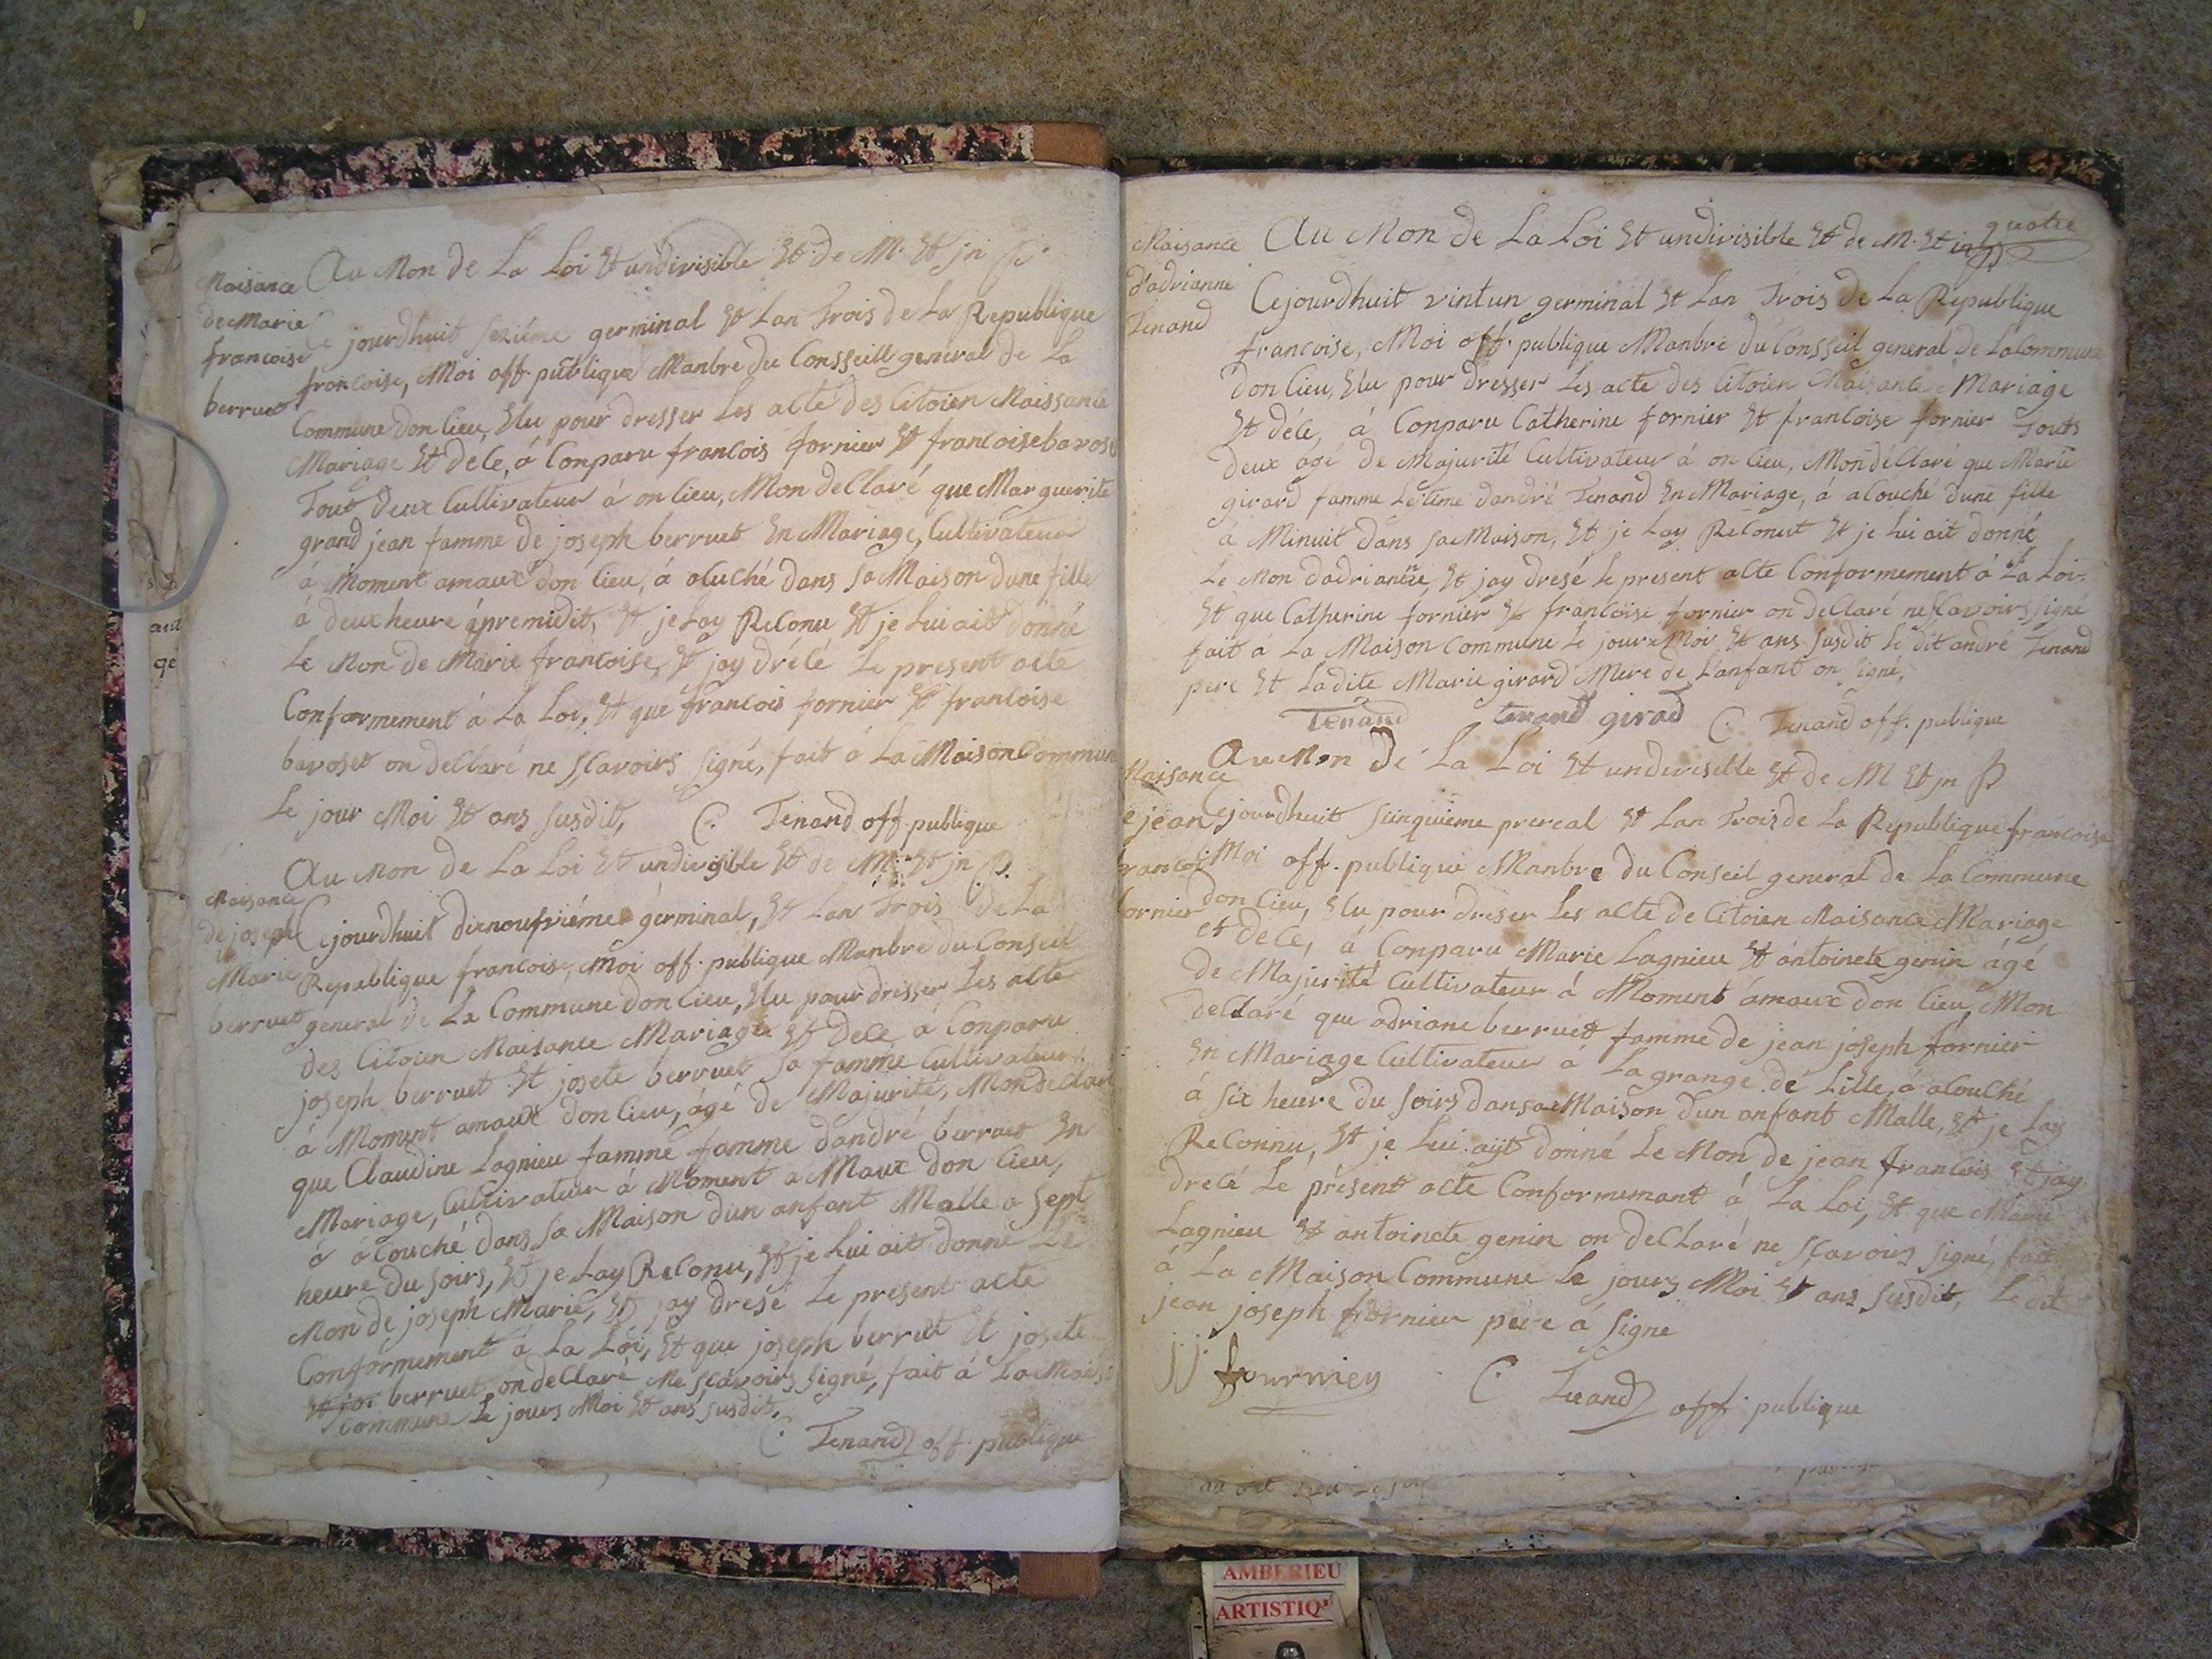 Naisance
de Marie
francoise
berruet
Au Mon de La Loi Et undivisible Et de M. Et jn P.
Ce jourdhuit seziéme germinal Et Lan Trois de La Republique
francoise, Moi off. publique Manbre du Consseill general de La
Commune don lieu, Elu pour dresser Les acte des Citoien Naissance
Mariage Et decé, á Conparu francois fornier Et francoise baroset
Tout Deux Cultivateur á on lieu, Mon declaré que Marguerite
grand jean famme de joseph berruet En Mariage, Cultivateur
á Moment amaux don lieu, á aluché dans sa Maison dune fille
á deux heure ápremidit, Et je Lay Reconu Et je Lui ait donné
Le Mon de Marie francoise, Et jay drécé Le present acte
Conformement á La Loi, Et que francois fornier Et francoise
baroset on declaré ne scavoirs signé, fait á La Maison Commune
Le jour Moi Et ans susdit, C. Tenand off. publique
Au Mon de La Loi Et undivisible Et de M. Et jn P.
Naisance
de joseph
Marie
berruet
Cejourdhuit dixnoufviéme germinal, Et Lan Trois de La
Republique francoise, moi off. publique Manbre du Conseil
general de La Commune don lieu, Elu pour dresser Les acte
des Citoien Naisance Mariage Et Decé, á Conparu
joseph berruet Et josete berruet sa famme Cultivateur
á Moment amaux don lieu, ágé de Majurité, Mon declaré
que Claudine Lagnieu famme famme dandré berruet En
Mariage, Cultivateur á Moment a Maux don lieu,
á álouché dans sa Maison dun anfant Malle a sept
heure du soirs, Et je Lay Reconu, Et je Lui ait donné Le
Mon de joseph Marie, Et jay dresé Le present acte
Conformement á La Loi, Et que joseph berruet Et josete
Et jos berruet on declaré Ne scavoirs signé, fait á La Maison
Commune Le jours Moi Et ans susdit.
C. Tenand off. publique
quatre
Naisance
d'adrianne
Tenand
Au Mon de La Loi Et undivisible Et de M. Et jn P
Cejourdhuit vintun germinal Et Lan Trois de La Republique
francoise, Moi off. publique Manbre du Consseil general de La Commune
don lieu, Elu pour dresser Les acte des Citoien Naisance Mariage
Et décé, á Conparu Catherine fornier Et francoise fornier Touts
deux agé de Majurité Cultivateur á on lieu, Mon déclaré que Marie
girard famme Letime dandré Tenand En Mariage, á alouché dune fille
á Minuit dans sa Maison, Et je Lay Reconut Et je Lui ait donné
Le Mon dadrianne, Et jay dresé Le present acte Conformement á La Loi
Et que Catherine fornier Et francoise fornier on declaré ne scavoirs signé
fait á La Maison Commune Le jour Moi Et ans susdit Le dit andré Tenand
pere Et Ladite Marie girard Mere de L'anfant on signé,
Tenand tenand girad C. Tenand off. publique
Au Mon de La Loi Et undivisible Et de M Et jn P
Naisance
e jean
rancoi
fornier
Cejourdhuit sinquième prereal Et Lan Trois de La Republique francoise
Moi off. publique Manbre du Conseil general de La Commune
don lieu, Elu pour dreser Les acte de Citoien Naisance Mariage
et decé, á Conparu Marie Lagnieu Et antoinete genin ágé
de Majurité Cultivateur á Moment ámaux don lieu, Mon
declaré que adriane berruet famme de jean joseph fornier
En Mariage Cultivateur á La grange de Lille, á alouché
á six heure du soirs dans a Maison dun anfant Malle, Et je Lay
Reconnu, Et je Lui ayt donné Le Mon de jean francois Et jay
drecé Le présent acte Conformemant á La Loi, Et que Marie
Lagnieu Et antoinete genin on declaré ne scavoirs signé, fait
á La Maison Commune Le jours Moi Et ans susdit, Le dit
jean joseph fornier pere á signe
jj fournier C. Tenand off. publique
AMBERIEU
ARTISTIQ'